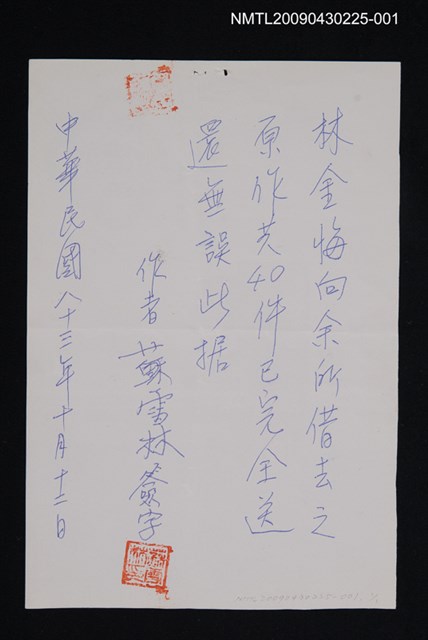 NMTL20090430225-001
林金悔向余所借去之
原作共40件已完全送
還無誤此据
作者蘇雪林簽字
中華民國八十三年十月十二日